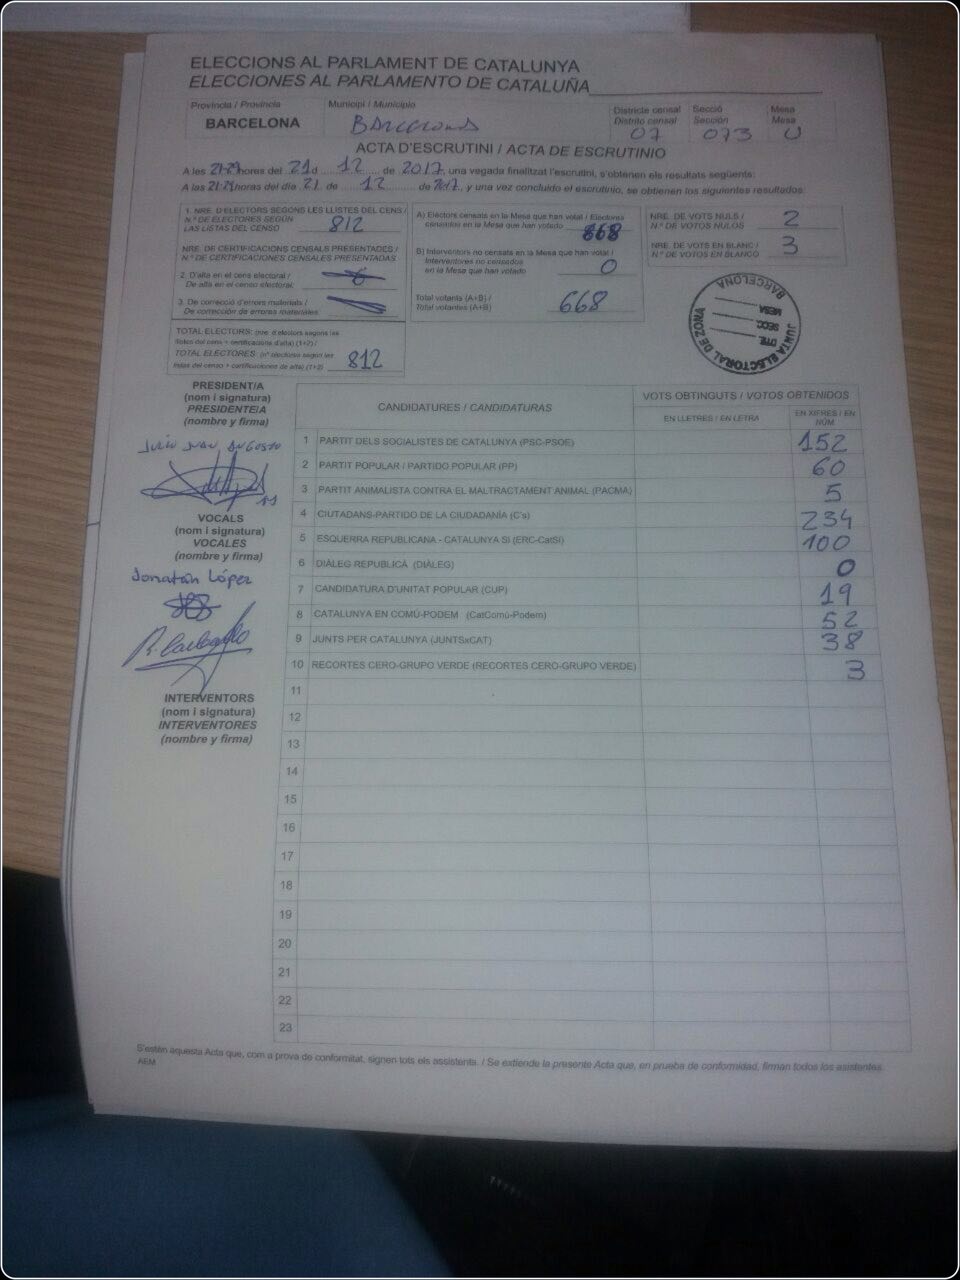 ELECCIONS AL PARLAMENT DE CATALUNYA
ELECCIONES AL PARLAMENTO DE CATALUÑA
Provincia / Provincia
BARCELONA
Municipi / Municipio
Barcelona
Districte censal
Distrito censal
07
Secció
Sección
073
Mesa
Mesa
U
ACTA D'ESCRUTINI / ACTA DE ESCRUTINIO
A les 21:29 hores del 21 d 12 de 2017, una vegada finalitzat l'escrutini, s'obtenen els resultats següents:
A las 21:29 horas del día 21 de 12 de 2017, y una vez concluido el escrutinio, se obtienen los siguientes resultados:
1. NRE. D'ELECTORS SEGONS LES LLISTES DEL CENS /
N.º DE ELECTORES SEGÚN
LAS LISTAS DEL CENSO 812
NRE. DE CERTIFICACIONS CENSALS PRESENTADES /
N.º DE CERTIFICACIONES CENSALES PRESENTADAS
2. D'alta en el cens electoral /
De alta en el censo electoral:
3. De correcció d'errors materials /
De corrección de errores materiales
TOTAL ELECTORS: (nre. d'electors segons les
llistes del cens + certificacions d'alta) (1+2) /
TOTAL ELECTORES (nº electores según las
listas del censo + certificaciones de alta) (1+2) 812
A) Electors censats en la Mesa que han votat / Electores
censados en la Mesa que han votado 668
B) Interventors no censats en la Mesa que han votat /
Interventores no censados
en la Mesa que han votado 0
Total votants (A+B) /
Total votantes (A+B) 668
NRE. DE VOTS NULS /
N.º DE VOTOS NULOS 2
NRE. DE VOTS EN BLANC /
N.º DE VOTOS EN BLANCO 3
JUNTA ELECTORAL DE ZONA
BARCELONA
DTE.
SECC.
MESA
PRESIDENT/A
(nom i signatura)
PRESIDENTE/A
(nombre y firma)
Julio Juan Augosto
VOCALS
(nom i signatura)
VOCALES
(nombre y firma)
Jonatán López
INTERVENTORS
(nom i signatura)
INTERVENTORES
(nombre y firma)
CANDIDATURES / CANDIDATURAS
VOTS OBTINGUTS / VOTOS OBTENIDOS
EN LLETRES / EN LETRA
EN XIFRES / EN
NÚM
1 PARTIT DELS SOCIALISTES DE CATALUNYA (PSC-PSOE) 152
2 PARTIT POPULAR / PARTIDO POPULAR (PP) 60
3 PARTIT ANIMALISTA CONTRA EL MALTRACTAMENT ANIMAL (PACMA) 5
4 CIUTADANS-PARTIDO DE LA CIUDADANÍA (C's) 234
5 ESQUERRA REPUBLICANA - CATALUNYA SÍ (ERC-CatSí) 100
6 DIÀLEG REPUBLICÀ (DIÀLEG) 0
7 CANDIDATURA D'UNITAT POPULAR (CUP) 19
8 CATALUNYA EN COMÚ-PODEM (CatComú-Podem) 52
9 JUNTS PER CATALUNYA (JUNTSxCAT) 38
10 RECORTES CERO-GRUPO VERDE (RECORTES CERO-GRUPO VERDE) 3
11
12
13
14
15
16
17
18
19
20
21
22
23
S'estén aquesta Acta que, com a prova de conformitat, signen tots els assistents. / Se extiende la presente Acta que, en prueba de conformidad, firman todos los asistentes.
AEM